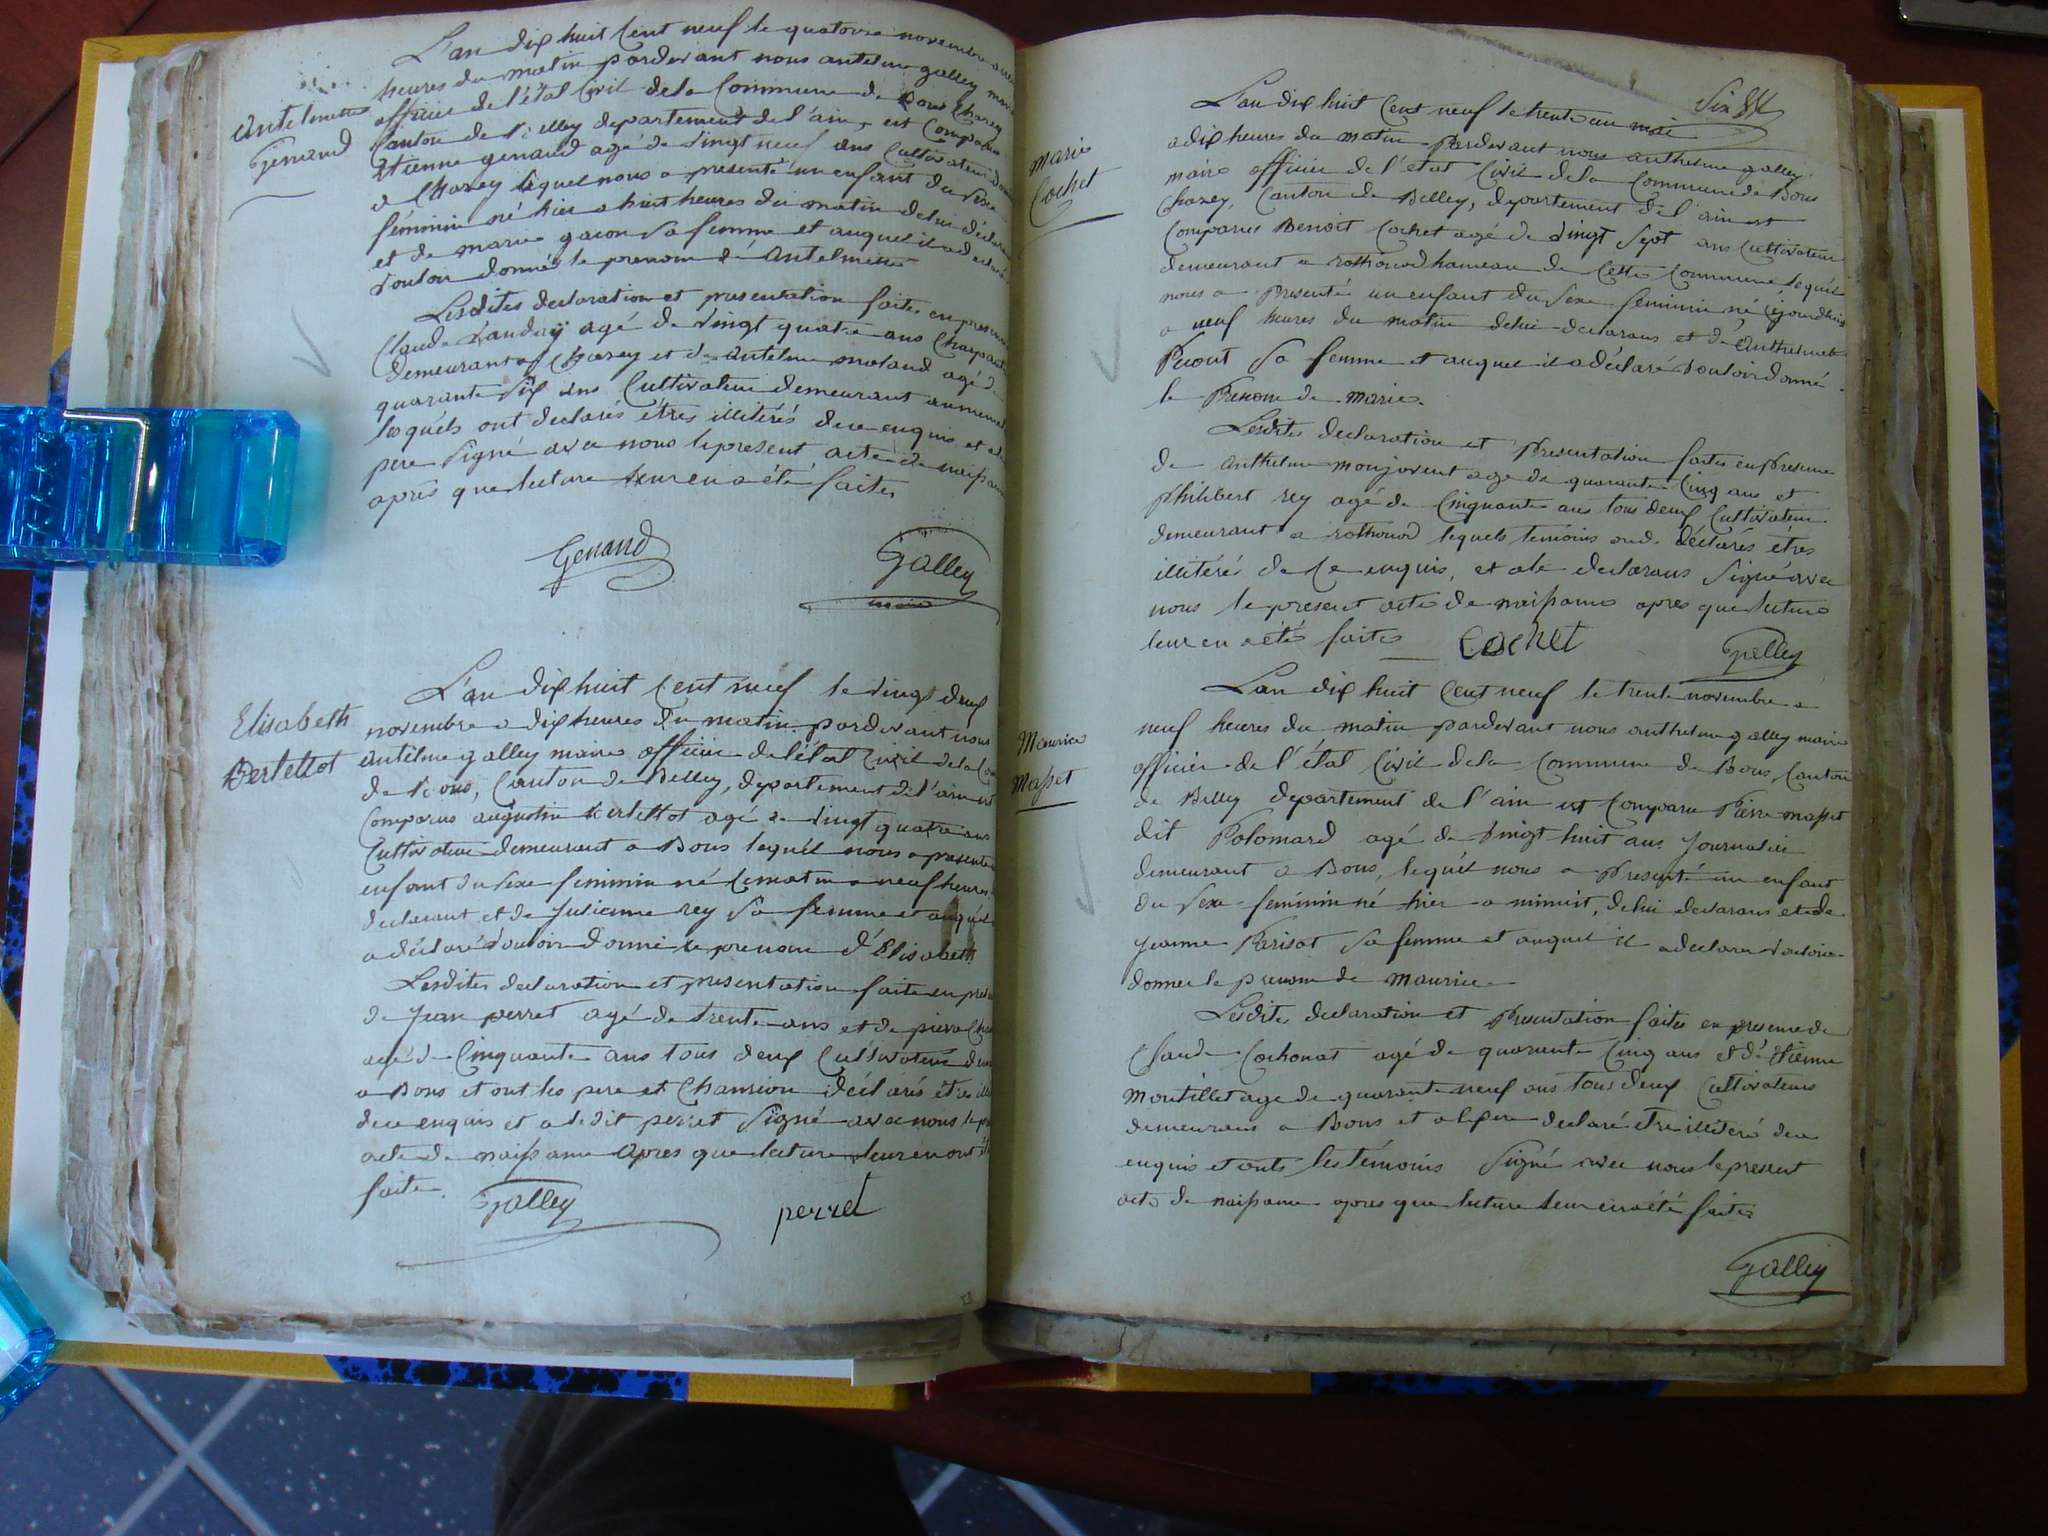 Antelmette
Genand
L'an dix huit Cent neuf le quatorze novembre a
heures du matin pardevant nous antelme galley maire
officier de l'état Civil de la Commune de Bous Charey
Canton de Belley departement de l'ain, est Comparu
Etienne genaud agé de vingt neuf ans Cultivateur
a Charey lequel nous a presenté un enfant du sexe
féminin né hier a huit heures du matin delui déclarant
et de marie gacon sa femme et auquel il a declaré
vouloir donné le prenom d'Antelmette
Lesdites declaration et presentation faites en presence
Claude Landry agé de vingt quatre ans Charpentier
demeurant a Charey et de Antelme moland agé de
quarante six ans Cultivateur demeurant au meme
lesquels ont declarés étres illitérés de ce enquis et a le
pere Signé avec nous le present acte de naissance
après que lecture leur en a été faites
Genand
Galley
maire
Elisabeth
Bertettot
L'an dix huit Cent neuf le vingt deux
novembre a dix heures du matin pardevant nous
antelme galley maire officier de l'état Civil de la Com
de Bous, Canton de Belley, departement de l'ain est
Comparus augustin Bertettot agé de vingt quatre ans
Cultivateur demeurant a Bous lequél nous a presenté
enfant du sexe feminin né Cematin a neuf heures
declarant et de Julienne rey sa femme et auquél
a déclaré vouloir donné le prenom d'Elisabeth
Lesdites declaration et presentation faite en presen
de Jean perret agé de trente ans et de pierre Cham
agé de Cinquante ans tous deux Cultivateurs dem
a Bous et ont les pere et Chamion déclarés étres ill
de ce enquis et a le dit perret Signé avec nous le p
acte de naissance Apres que lecture leur en ont ét
faite.
Galley
perret
Six
Marie
Cochet
L'an dix huit Cent neuf le trente un mai
a dix heures du matin Pardevant nous anthelme galley
maire officier de l'état Civil de la Commune de Bous
Charey, Canton de Belley, departement de l'ain est
Comparus Benoit Cochet agé de vingt Sept ans Cultivateur
demeurant a rothonod hameau de Cette Commune lequél
nous a Presenté un enfant du Sexe feminin né Cejourdhui
a neuf heures du matin delui declarans et de Anthelmette
Picout Sa femme et auquel il a déclaré vouloir donné
le Prenom de marie.
Lesdites declaration et Presentation faites en Presence
de Anthelme monjovent agé de quarante Cinq ans et
Philibert rey agé de Cinquante ans tous deux Cultivateur
demeurant a rothonod lequels temoins onde déclarés étres
illitérés de Ce enquis, et a le declarans Signé avec
nous le present acte de naissance apres que lecture
leur en a été faites
Cochet
Galley
Maurice
Masset
L'an dix huit Cent neuf le trente novembre a
neuf heures du matin pardevant nous anthelme galley maire
officier de l'état Civil de la Commune de Bous, Canton
de Belley departement de l'ain est Comparu Pierre masset
dit Polomard agé de vingt huit ans Journalier
demeurant a Bous, lequél nous a Presenté un enfant
du Sexe feminin né hier a minuit, delui devarans et de
Jeanne Parisot Sa femme et auquel il a declaré vouloir
donner le prenom de maurice
Lesdites declaration et Presentation faites en presence de
Claude Cochonat agé de quarante Cinq ans et d'Etienne
Montillet age de quarante neuf ans tous deux Cultivateurs
demeurans a Bous et a le pere declaré etre illitéré de ce
enquis et onts les témoins Signé avec nous le present
acte de naissance apres que lecture leur en a été faites
Galley